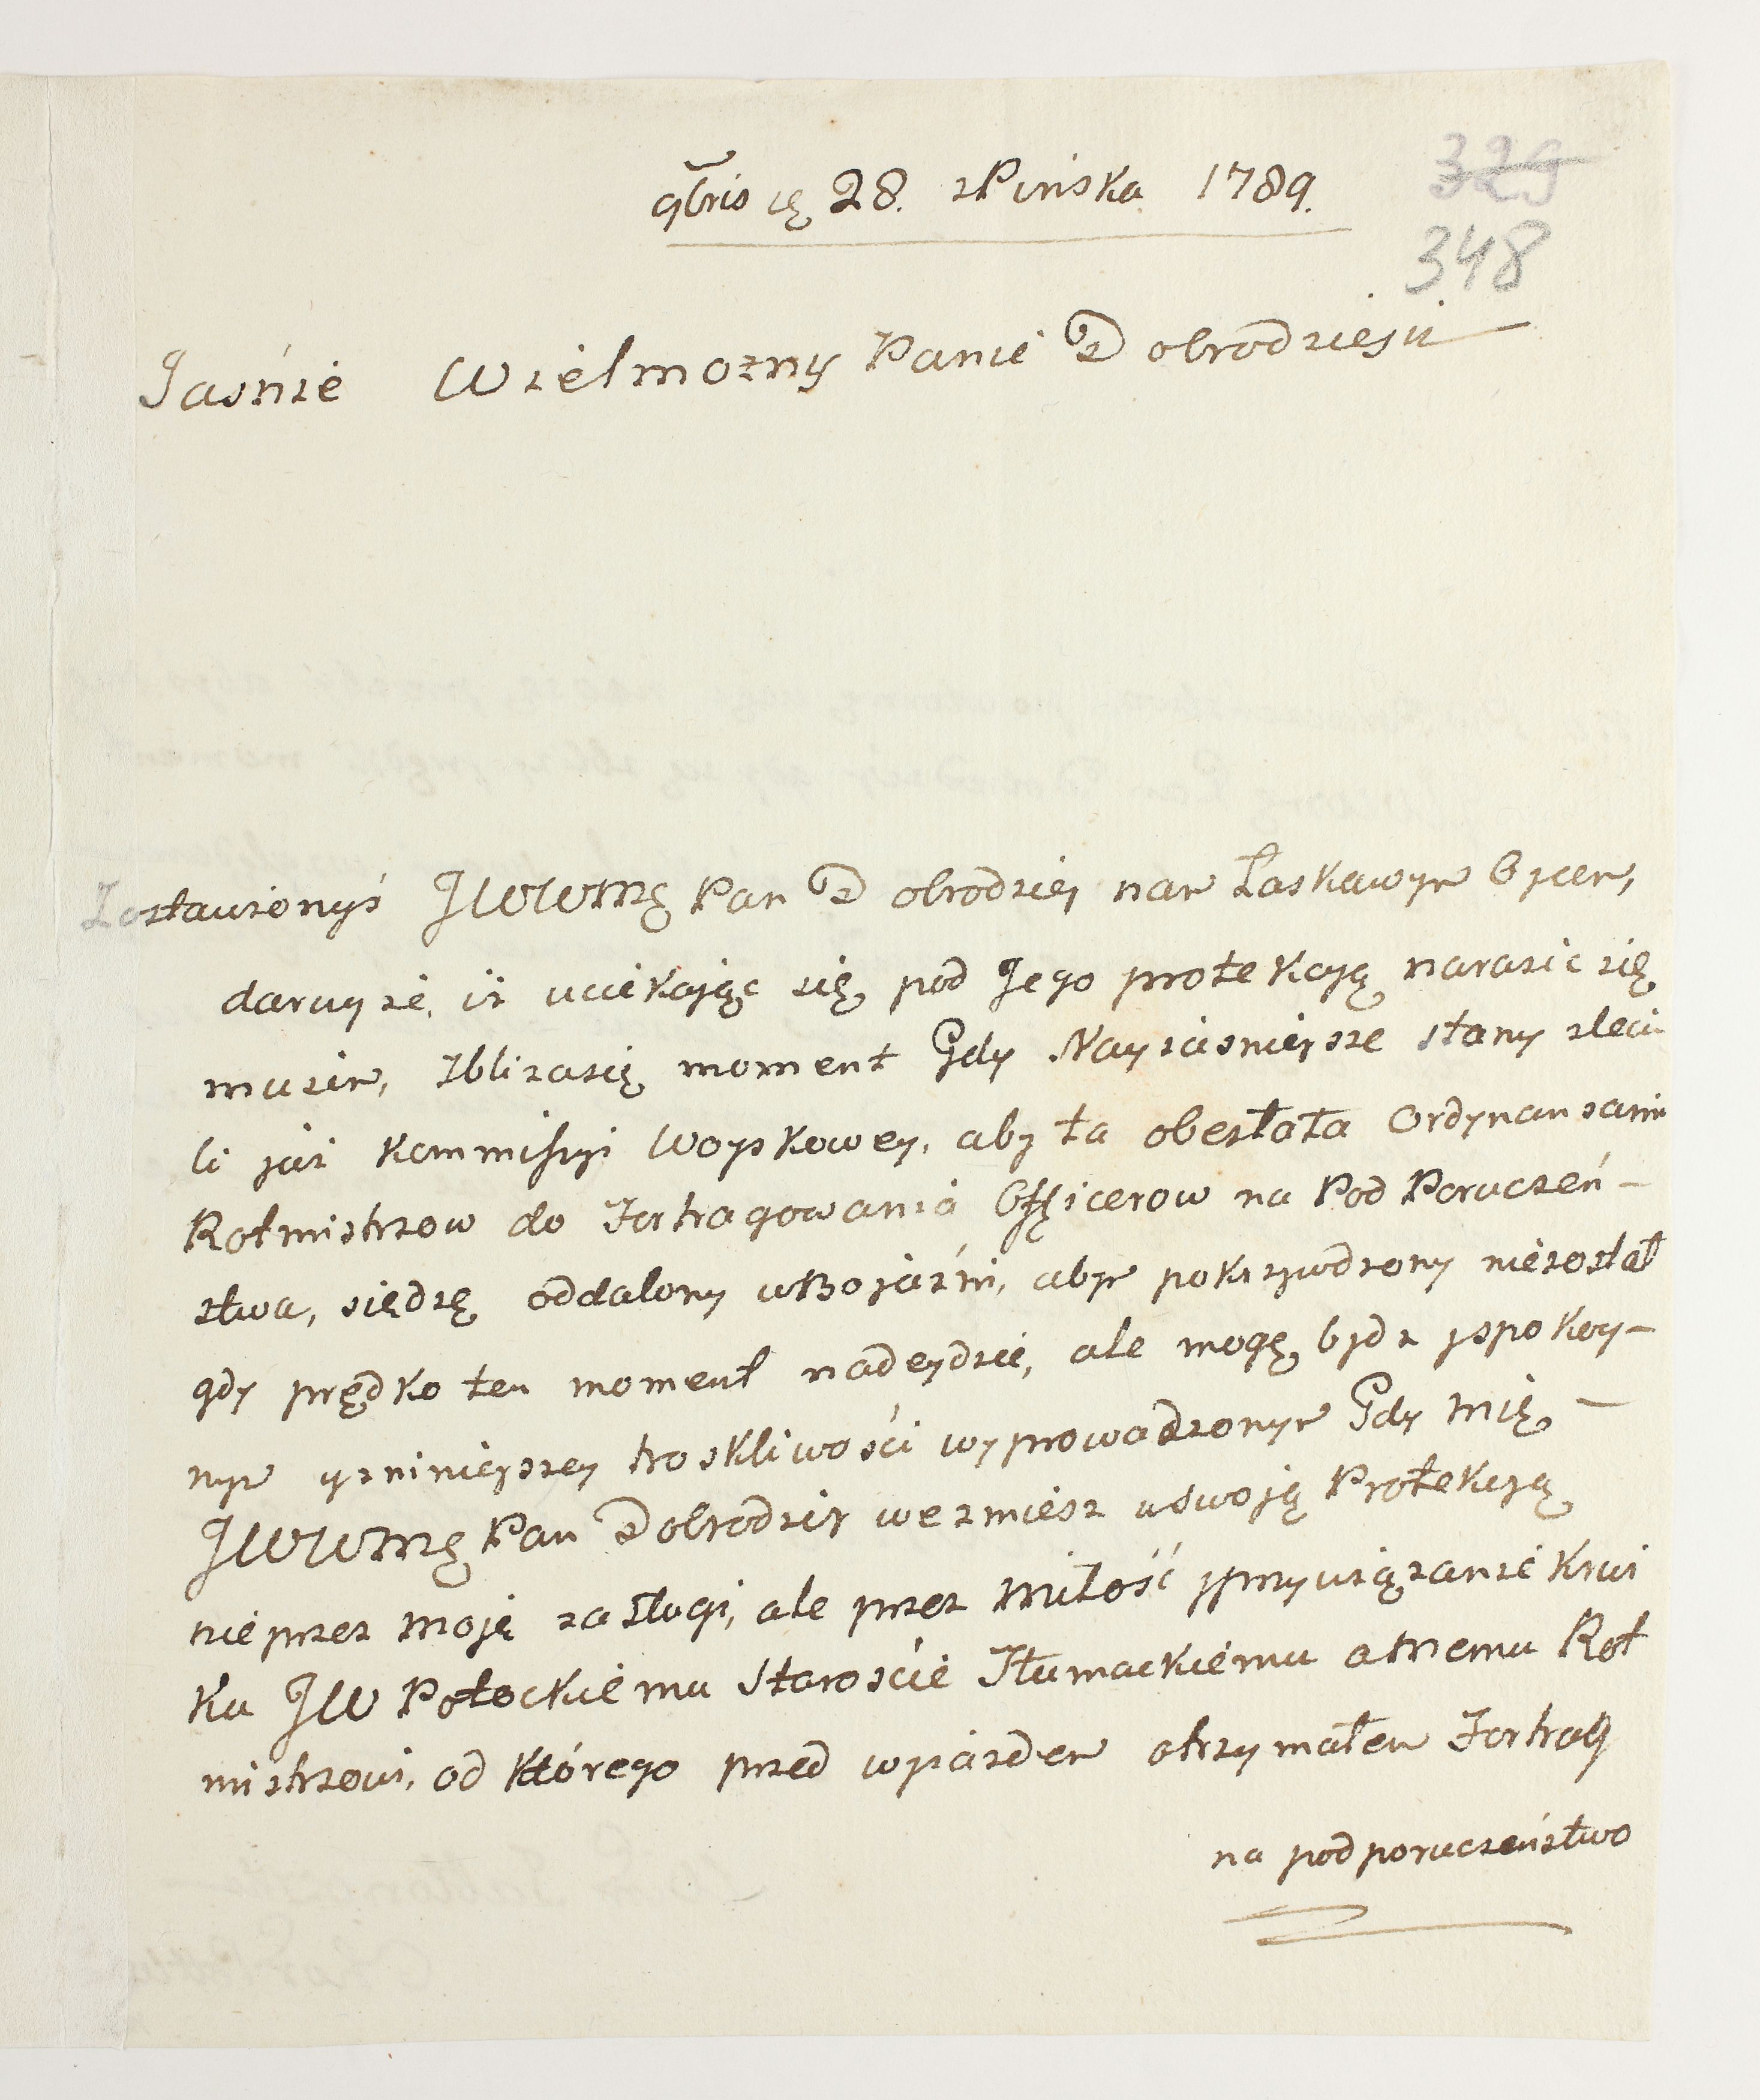 9bris ię 28. z Pinska 1789.
329
348
Jaśnie Wielmozny Panie Dobrodzieju
Zostawionyś JWWMę Pan Dobrodziey nam Łaskawym Oycem,
daruy ze, iż uciekając się, pod Jego protekcyą narazić się
muszę, Zbliza się moment Gdy Nayiasnieysze Stany zleci-
li już Kommissyi Woyskowey, aby ta obesłała Ordynansami
Rotmistrzow do Fortragowania Officerow na Pod Poruczeń-
stwa, siędzę oddalony w Bojaźni, abym pokrzywdzony niezostał
gdy prędko ten moment nadeydzie, ale mogę bydz yspokoy-
nym yz niniejszey troskliwości wyprowadzonym Gdy mię -
JWWMę Pan Dobrodziey wezmiesz w swoją Protekcyą
nieprzez moje zasługi, ale przez miłość yprzywiązanie ku
JW Potockiemu Staroście Tłumackiemu a memu Rot
mistrzowi, od którego przed wyiazdem otrzymałem Fortrag
na podporuczeństwo